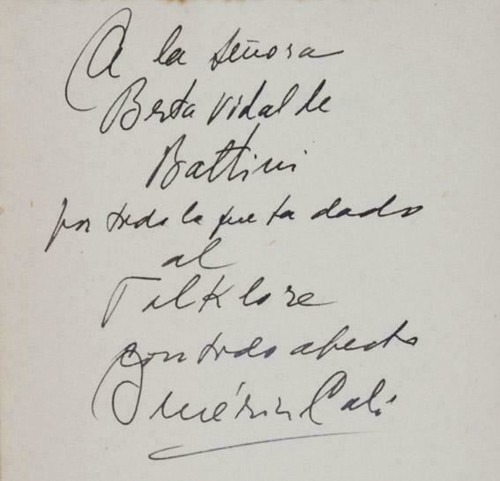 A la señora
Berta Vidal de
Battini
por todo lo que ha dado
al
Folklore
con todo afecto
Américo Cali